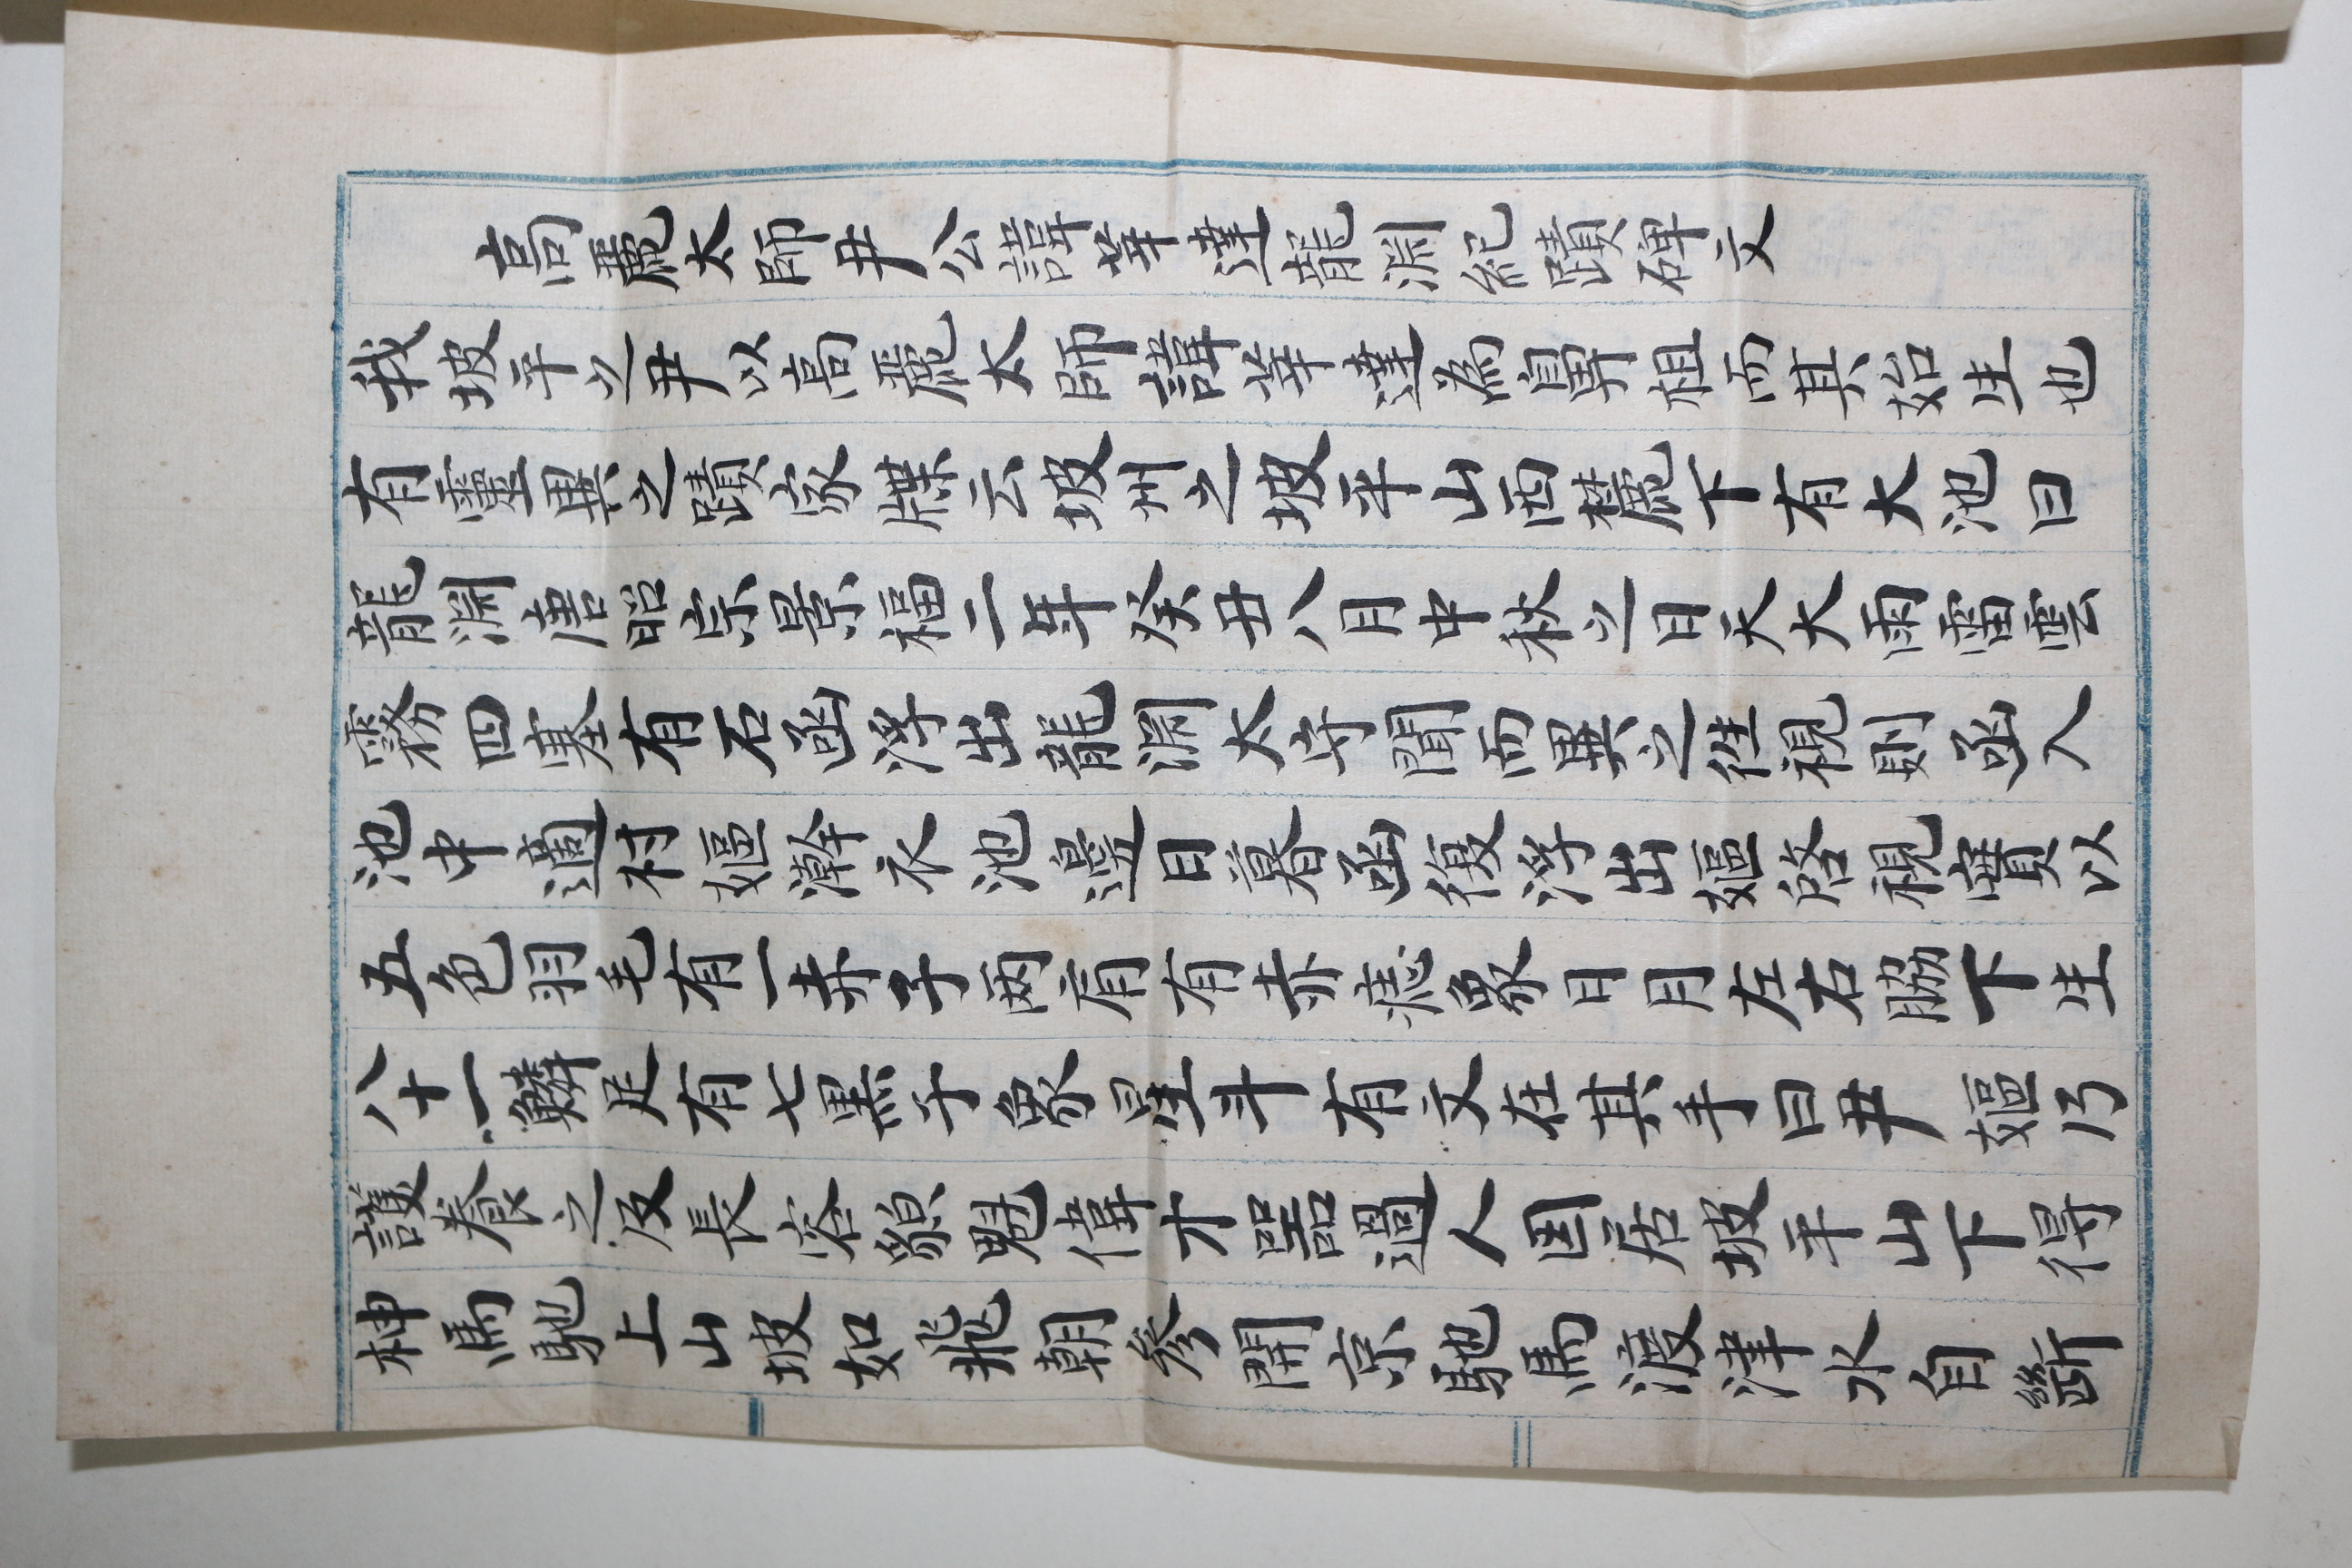 高麗太師尹公諱莘達龍淵紀蹟碑文
我坡平之尹以高麗太師諱莘達爲鼻祖而其始生也
有靈異之蹟家牒云坡州之坡平山西麓下有大池曰
龍淵唐昭宗景福二年癸丑八月中秋之日天大雨雷雲
霧四塞有石函浮出龍淵太守聞而異之往視則函入
池中適村嫗澣衣池邊日暮函復浮出嫗啓視實以
五色羽毛有一丯子兩肩有赤痣象日月左右脇下生
八十一鱗足有七黑子象星斗有文在其手曰尹嫗乃
護養之及長容貌魁偉才器過人因居坡平山下得
神馬馳上山坡如飛朝參開京馳馬渡津水自斷